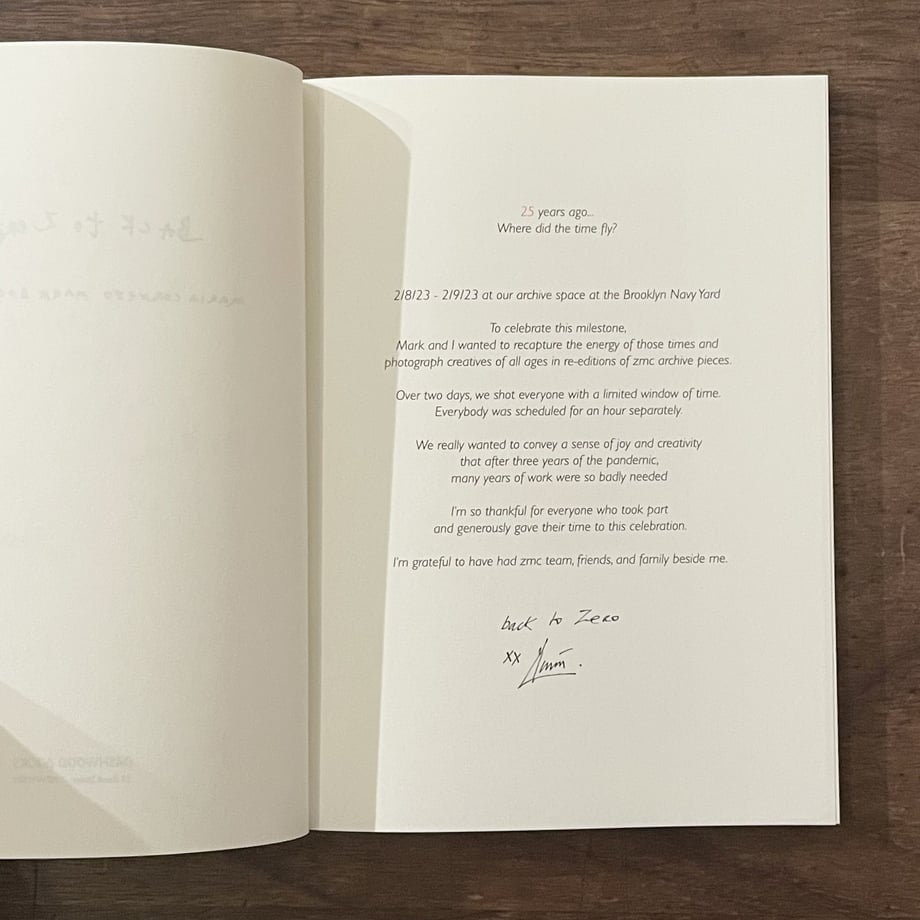 BACK to
MARIA CORNEJO MARK
DASHWOOD BOOKS
25 years ago...
Where did the time fly?
2/8/23 - 2/9/23 at our archive space at the Brooklyn Navy Yard
To celebrate this milestone,
Mark and I wanted to recapture the energy of those times and
photograph creatives of all ages in re-editions of zmc archive pieces.
Over two days, we shot everyone with a limited window of time.
Everybody was scheduled for an hour separately.
We really wanted to convey a sense of joy and creativity
that after three years of the pandemic,
many years of work were so badly needed
I'm so thankful for everyone who took part
and generously gave their time to this celebration.
I'm grateful to have had zmc team, friends, and family beside me.
back to Zero
xx